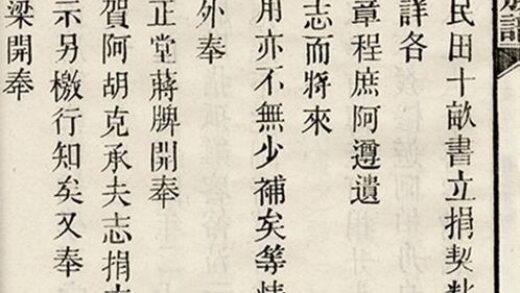 民田十畝書立捐契粘
詳各
章程庶阿遵遺
志而將來
用亦不無少補矣等情
外奉
正堂蔣牌開奉
賀阿胡克承夫志捐
示另檄行知矣又奉
梁開奉